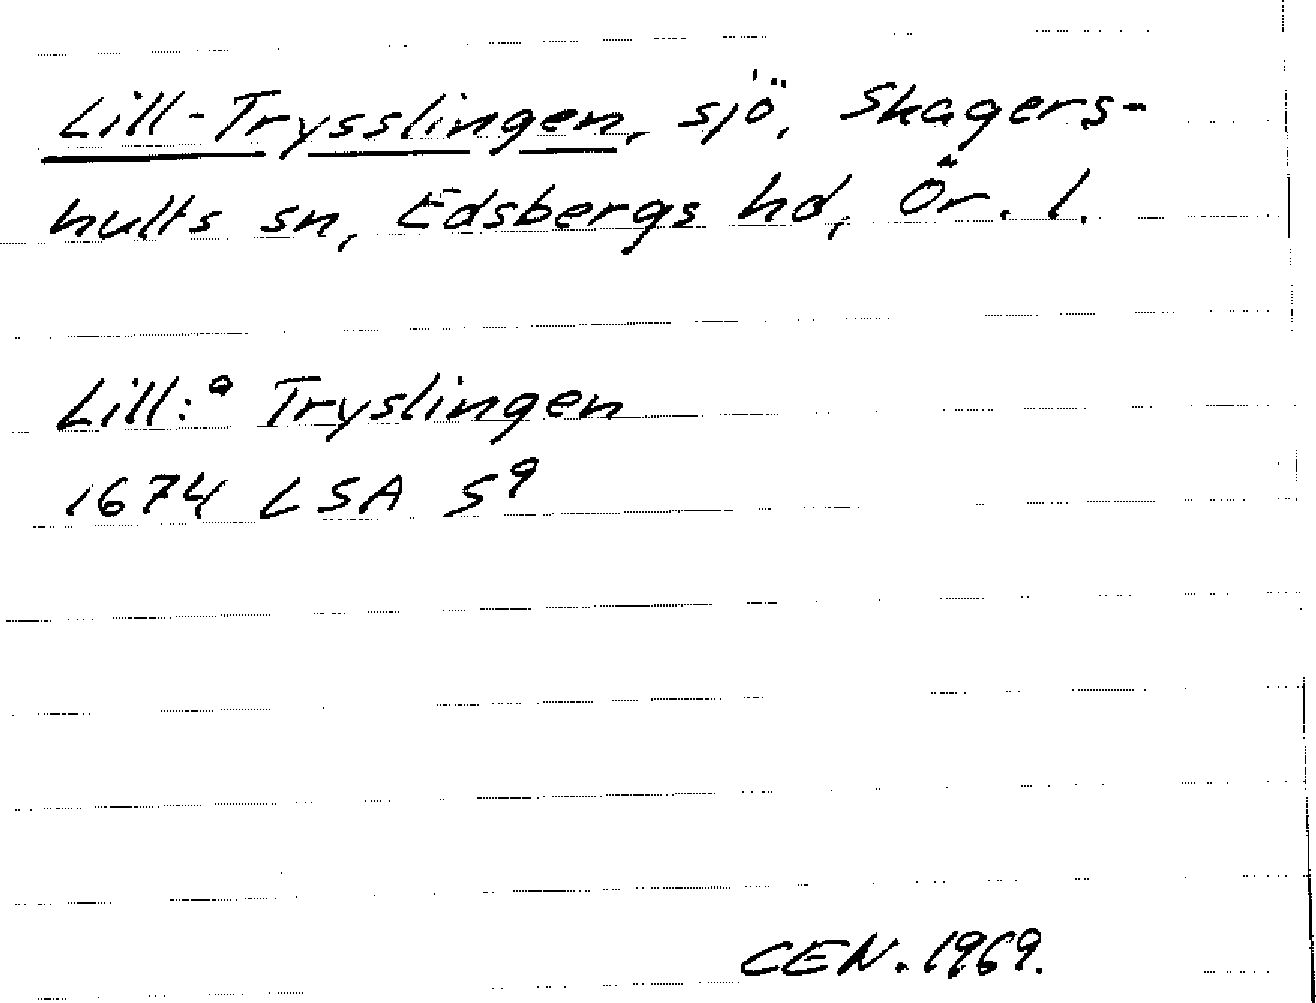 Lill-Trysslingen, sjö, Skagers-
hults sn, Edsbergs hd, Ör. l.
Lill:a Tryslingen
1674 LSA S9
CEN. 1969.